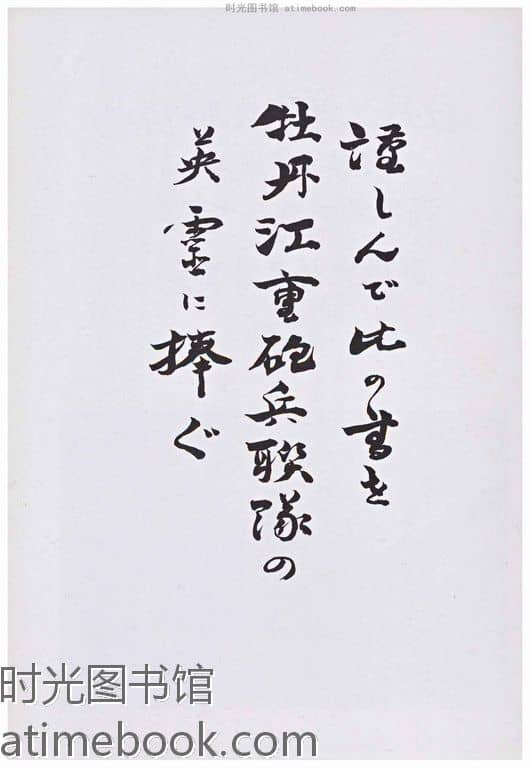 时光图书馆 atimebook.com
謹しんで此の書を
牡丹江重砲兵聯隊の
英霊に捧ぐ
时光图书馆
atimebook.com